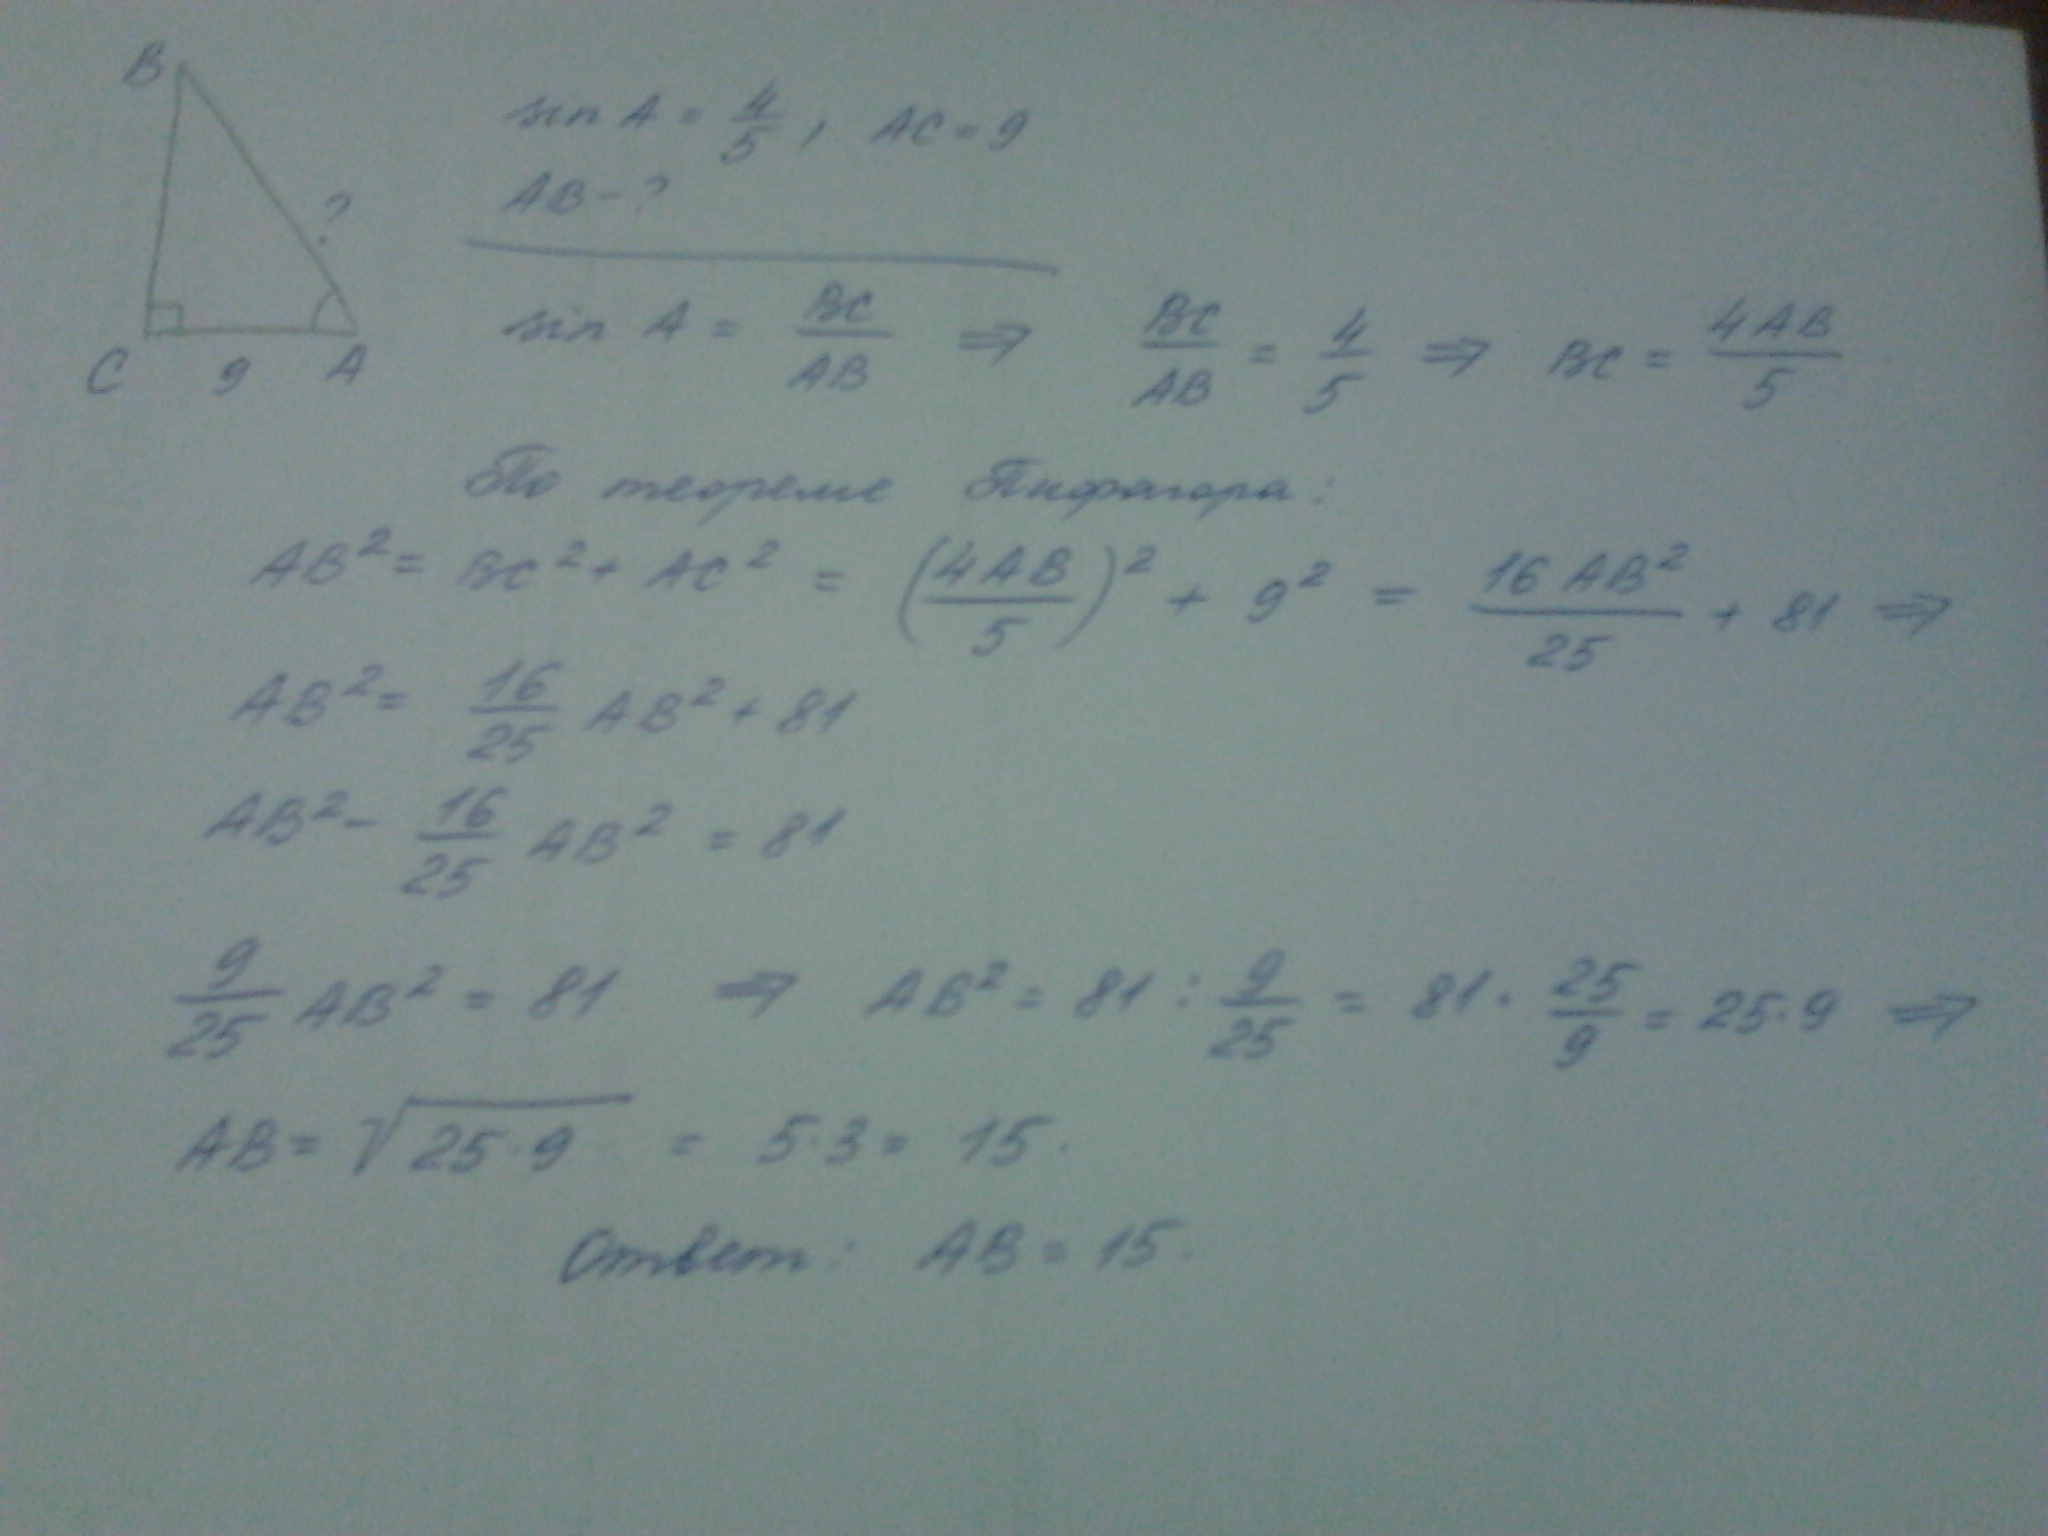 B
sin A = 4/5, AC = 9
AB - ?
?
C 9 A
sin A = BC/AB ⇒ BC/AB = 4/5 ⇒ BC = 4AB/5
По теореме Пифагора:
AB² = BC² + AC² = (4AB/5)² + 9² = 16AB²/25 + 81 ⇒
AB² = 16/25 AB² + 81
AB² - 16/25 AB² = 81
9/25 AB² = 81 ⇒ AB² = 81 : 9/25 = 81 · 25/9 = 25·9 ⇒
AB = √(25·9) = 5·3 = 15.
Ответ: AB = 15.